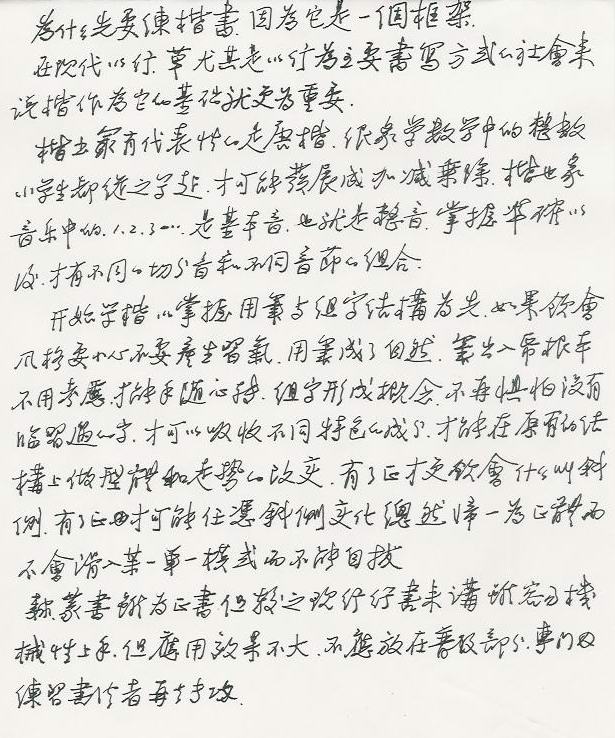 为什么先要练楷書.因为它是一個框架.
在现代以行.草尤其是以行为主要書寫方式的社會来
说楷作为它的基础就更为重要.
楷书最有代表性的是唐楷.很象学数学中的整数
小学生都從之学起.才可能發展成加減乘除.楷也象
音乐中的.1.2.3....是基本音.也就是整音.掌握準確以
後.才有不同的切分音和不同音節的组合.
开始学楷以掌握用筆与组字结構为先.如果领會
风格要小心不要產生習氣.用筆成了自然.筆出入常根本
不用考慮.才能手随心持.组字形成概念.不再惧怕没有
临習過的字.才可以吸收不同特色的成分.才能在原有的结
構上做型體和走势的改变.有了正才更领會什么叫斜
例.有了正也才可能任憑斜倒变化總然归一为正體而
不會滑入某一單一模式而不能自拔
隸篆書雖为正書但较之现行行書来講雖容易機
械性上手.但應用效果不大.不應放在普及部分.專门及
練習書法者再去手攻.